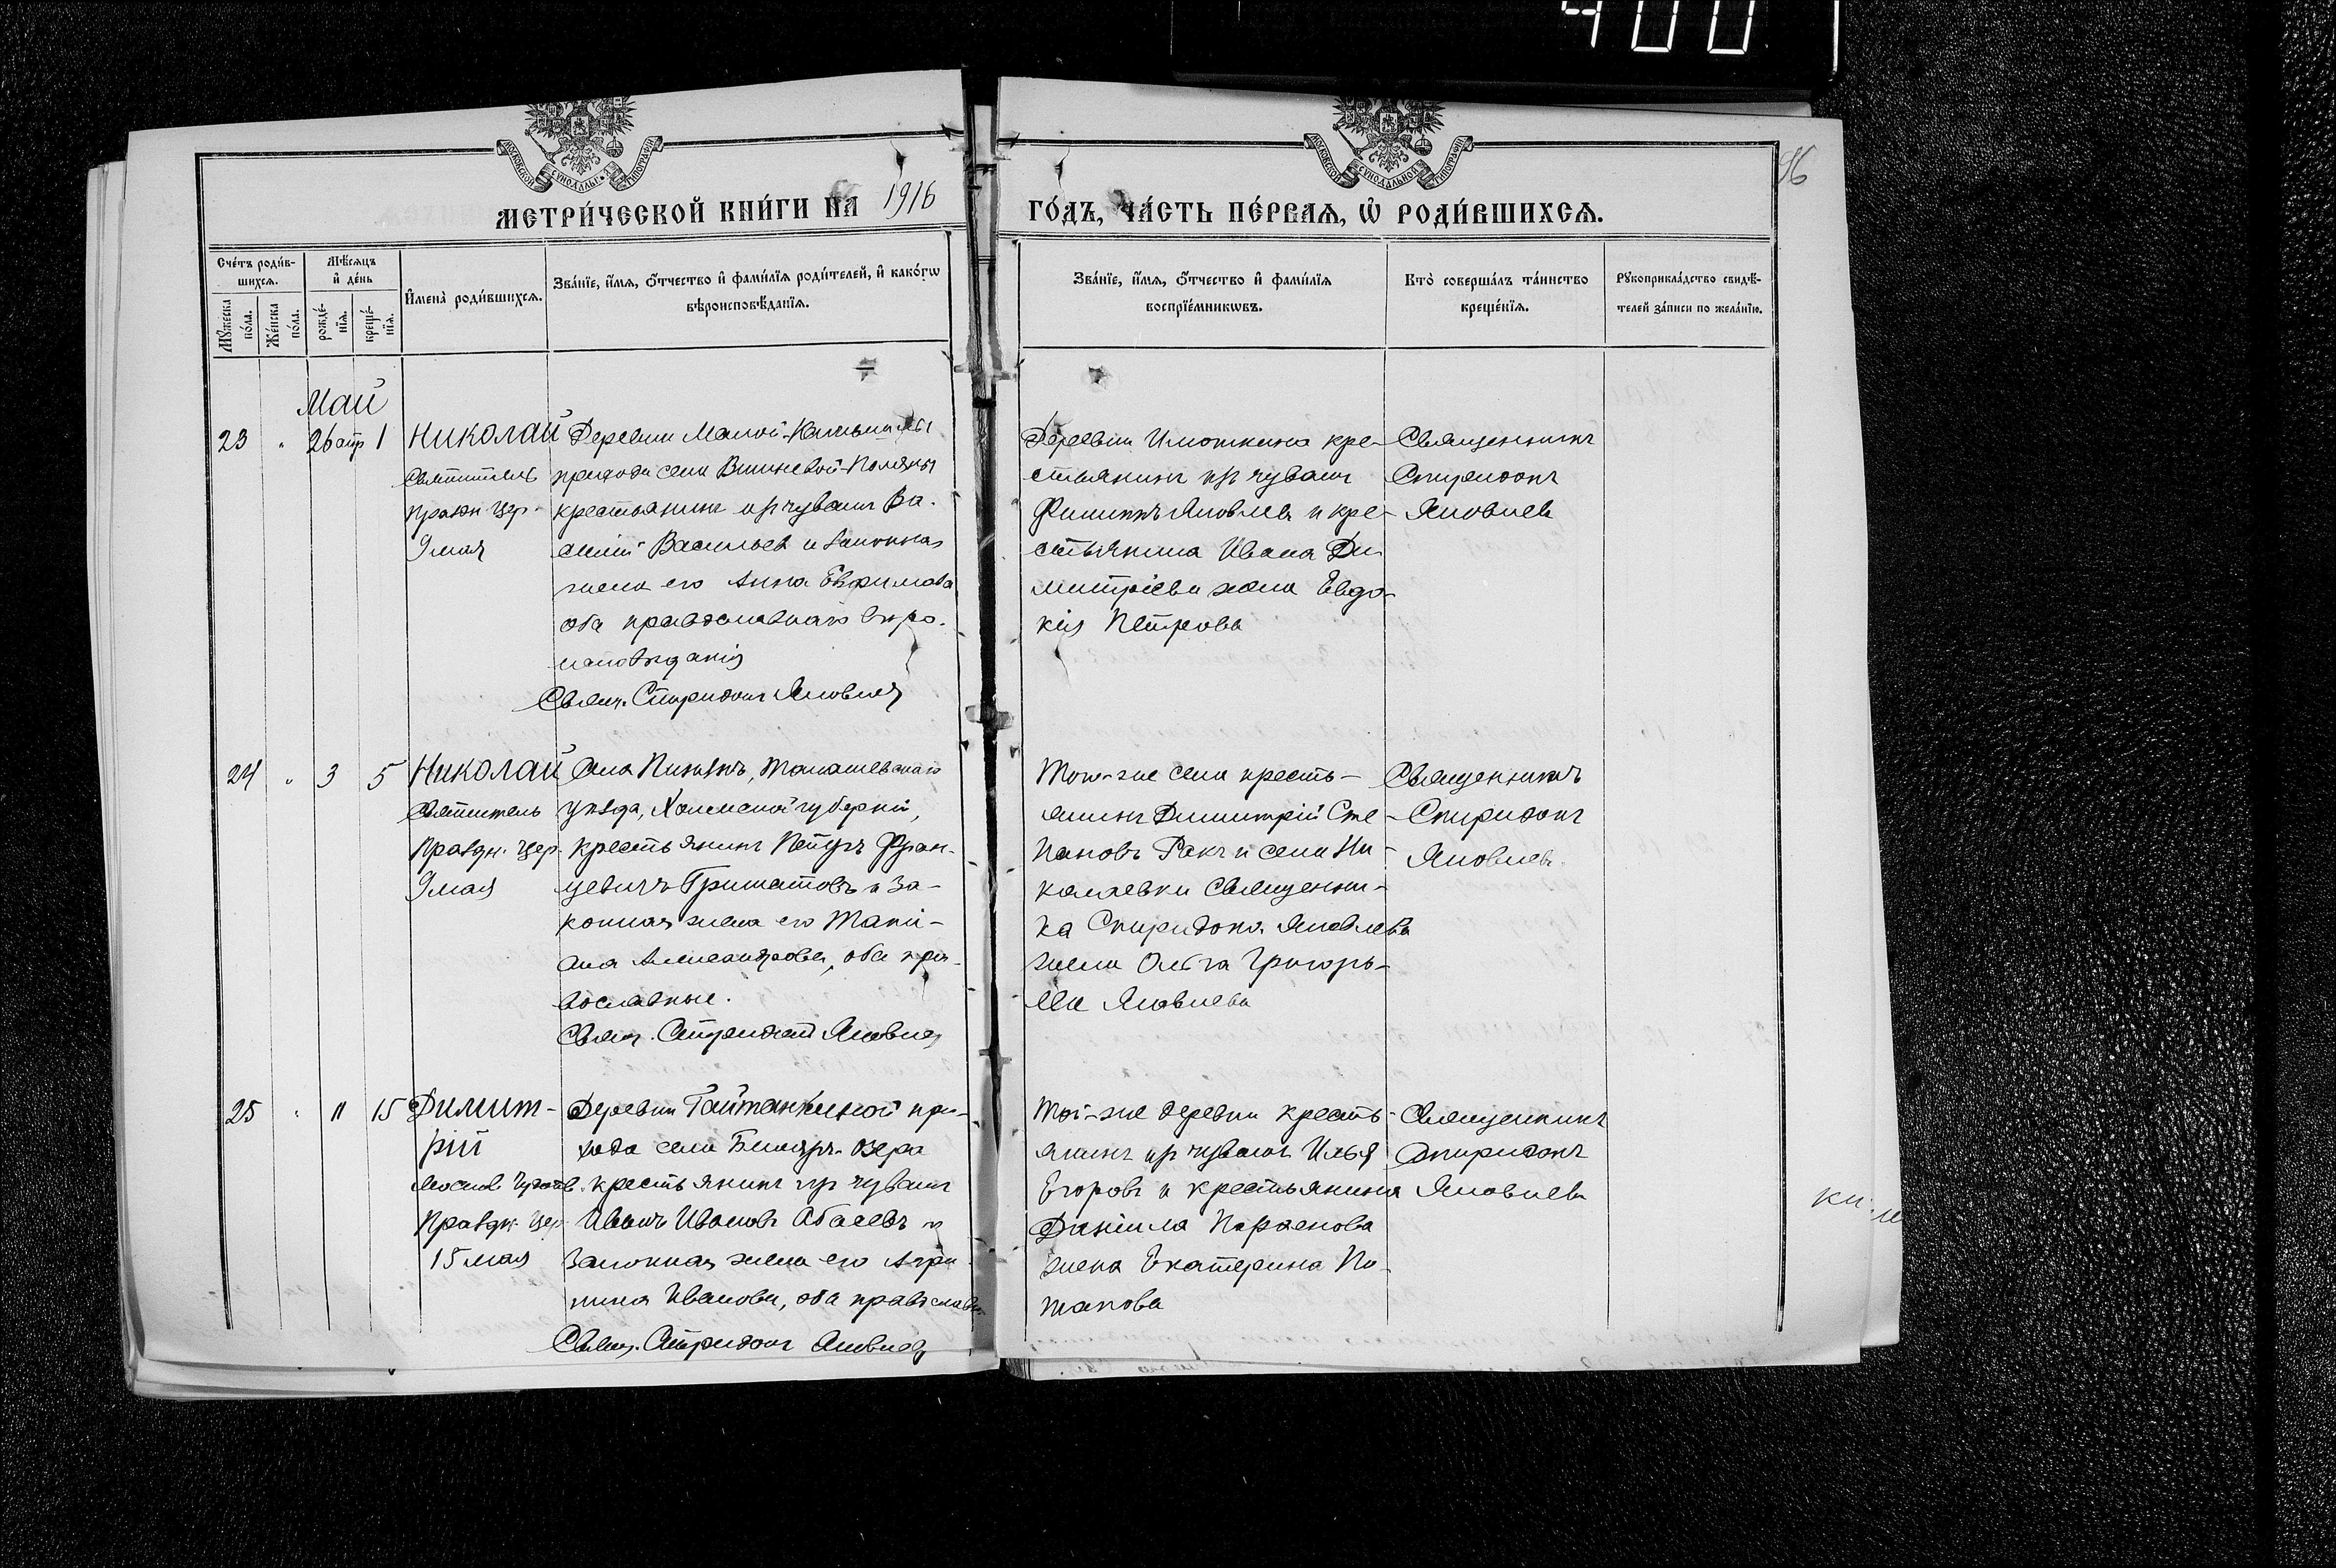 400
МОСКОВСКОЙ СѴНОДАЛЬН. ТИПОГРАФІИ
МОСКОВСКОЙ СѴНОДАЛЬНОЙ ТИПОГРАФІИ
МЕТРИ́ЧЕСКОЙ КНИ́ГИ НА 1916
ГО́ДЪ, ЧА́СТЬ ПЕ́РВАЯ, Ѽ РОДИ́ВШИХСЯ.
Сче́тъ роди́в-
шихся.
Мѣ́сяцъ
и҆ де́нь
Мꙋ́жеска
по́ла.
Же́нска
по́ла.
рожде́-
нїя.
креще́-
нїя.
И҆мена̀ роди́вшихся.
Зва́нїе, и҆́мя, ѻ҆́тчество и҆ фами́лїя роди́телей, и҆ како́гѡ
вѣроисповѣ́данїя.
Зва́нїе, и҆́мя, ѻ҆́тчество и҆ фами́лїя
воспрїе́мникѡвъ.
Кто̀ соверша́лъ та́инство
креще́нїя.
Рꙋкоприкла́дство свидѣ́-
телей за́писи по жела́нїю.
Май
23 " 26 апр 1 Николай
Святитель
праздн. цер.
9 мая
Деревни Малой
прихода села Вишневой-Поляны
крестьянинъ из чувашъ Ва-
силій Васильевъ и законная
жена его Анна Евфимова
оба православнаго вѣро-
исповѣданія
Свящ. Спиридонъ Яковлев
Деревни кре-
стьянинъ из чувашъ
Филиппъ Яковлевъ и кре-
стьянина Ивана Ди-
митріева жена Евдо-
кія Петрова
Священникъ
Спиридонъ
Яковлевъ
24 " 3 5 Николай
Святитель
Праздн. цер.
9 мая
Села Томашевскаго
уѣзда, Холмской губерніи,
крестьянинъ Петръ Фран-
цевичъ и за-
конная жена его Тати-
ана Александрова, оба пра-
вославные.
Свящ. Спиридонъ Яковлев
Того-же села кресть-
янинъ Димитрій Сте-
пановъ Ракъ и села Ни-
колаевки священни-
ка Спиридона Яковлева
жена Ольга Григорь-
ева Яковлева
Священникъ
Спиридонъ
Яковлевъ
25 " 11 15 Димит-
рій
Праздн. цер.
15 мая
Деревни при-
хода села озера
крестьянинъ из чувашъ
Иванъ Ивановъ Абаевъ и
законная жена его Агри-
пина Иванова, оба православн.
Свящ. Спиридонъ Яковлев
Той-же деревни кресть-
янинъ из чувашъ Илья
Егоровъ и крестьянина
Даніила
жена Екатерина По-
тапова
Священникъ
Спиридонъ
Яковлевъ